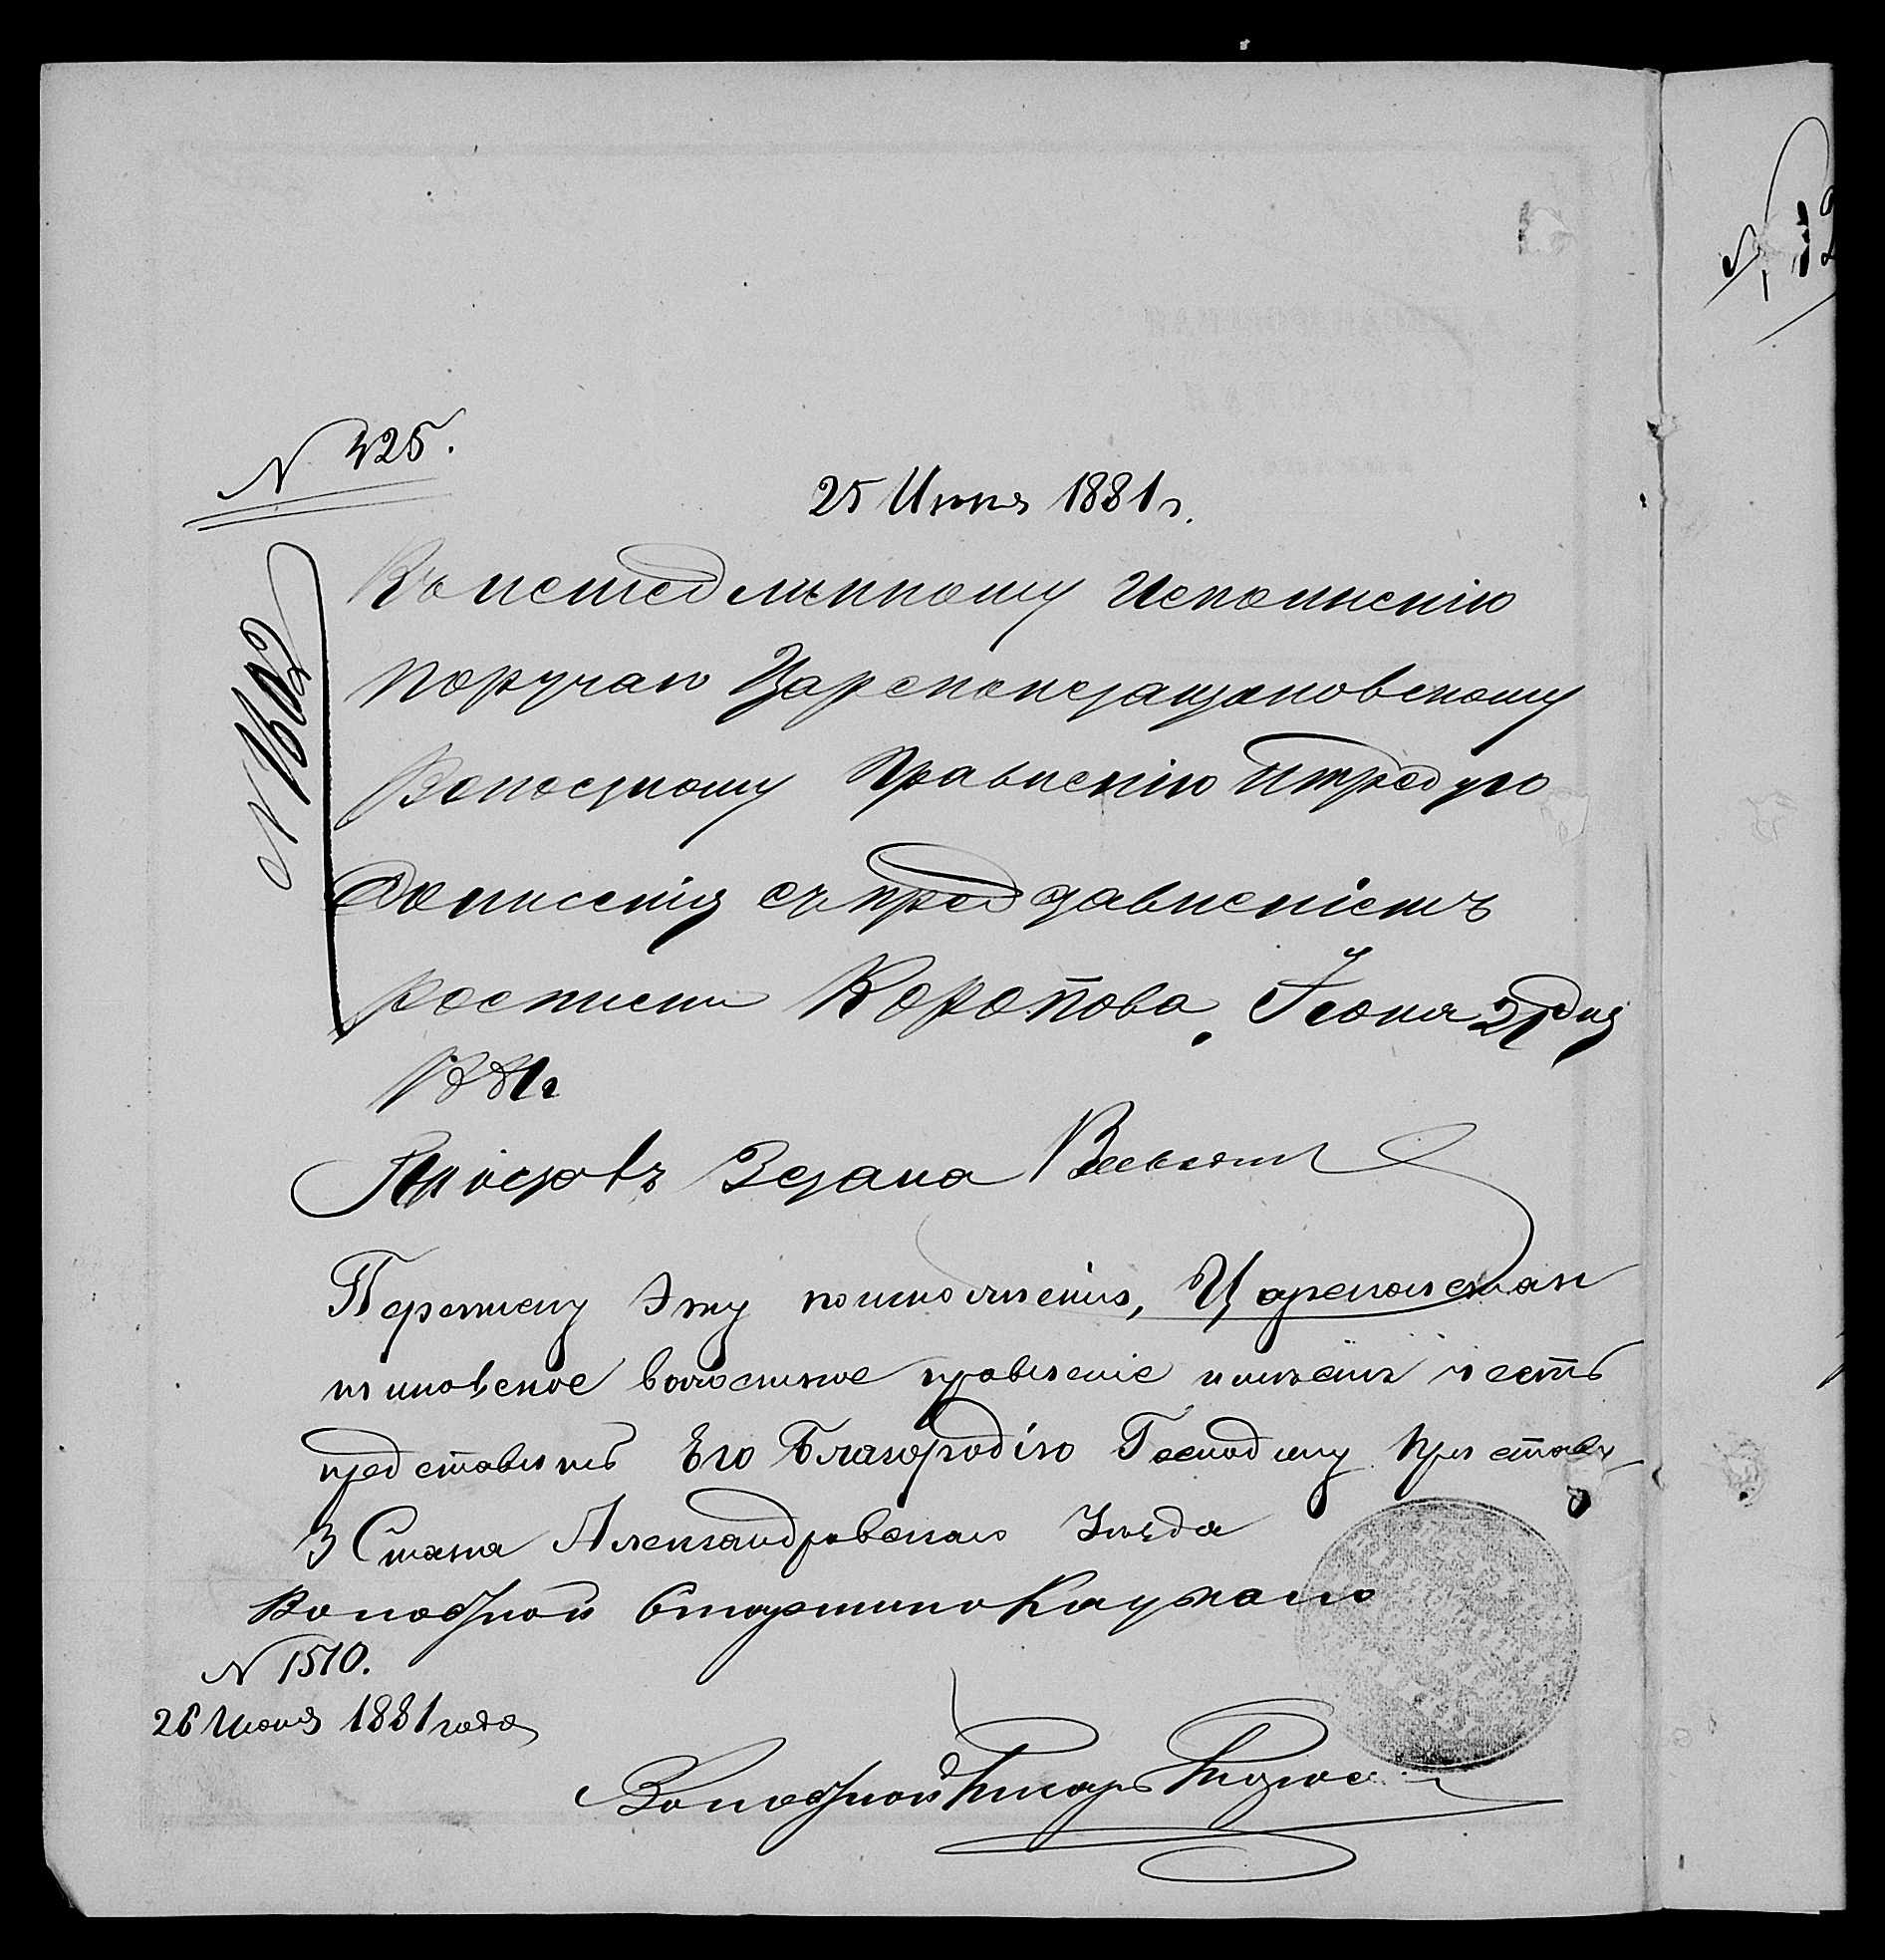 N 425.
25 Июня 1881 г.
N 1602
Къ немедлѣнному исполненію
поручаю Цареконстантиновскому
Волостному Правленію и требую
донесенія съ предъавленіемъ
росписки Коропова. Іюня 21 дня
1881 г
Приставъ 3 Стана
Переписку эту по исполненію, Цареконстан
тиновское волостное правленіе имѣетъ честь
представить Его Благородію Господину Приставу
3 Стана Александровскаго Уѣзда
Волостной Старшина
N 1510.
26 Июня 1881 года
Волостной Писарь